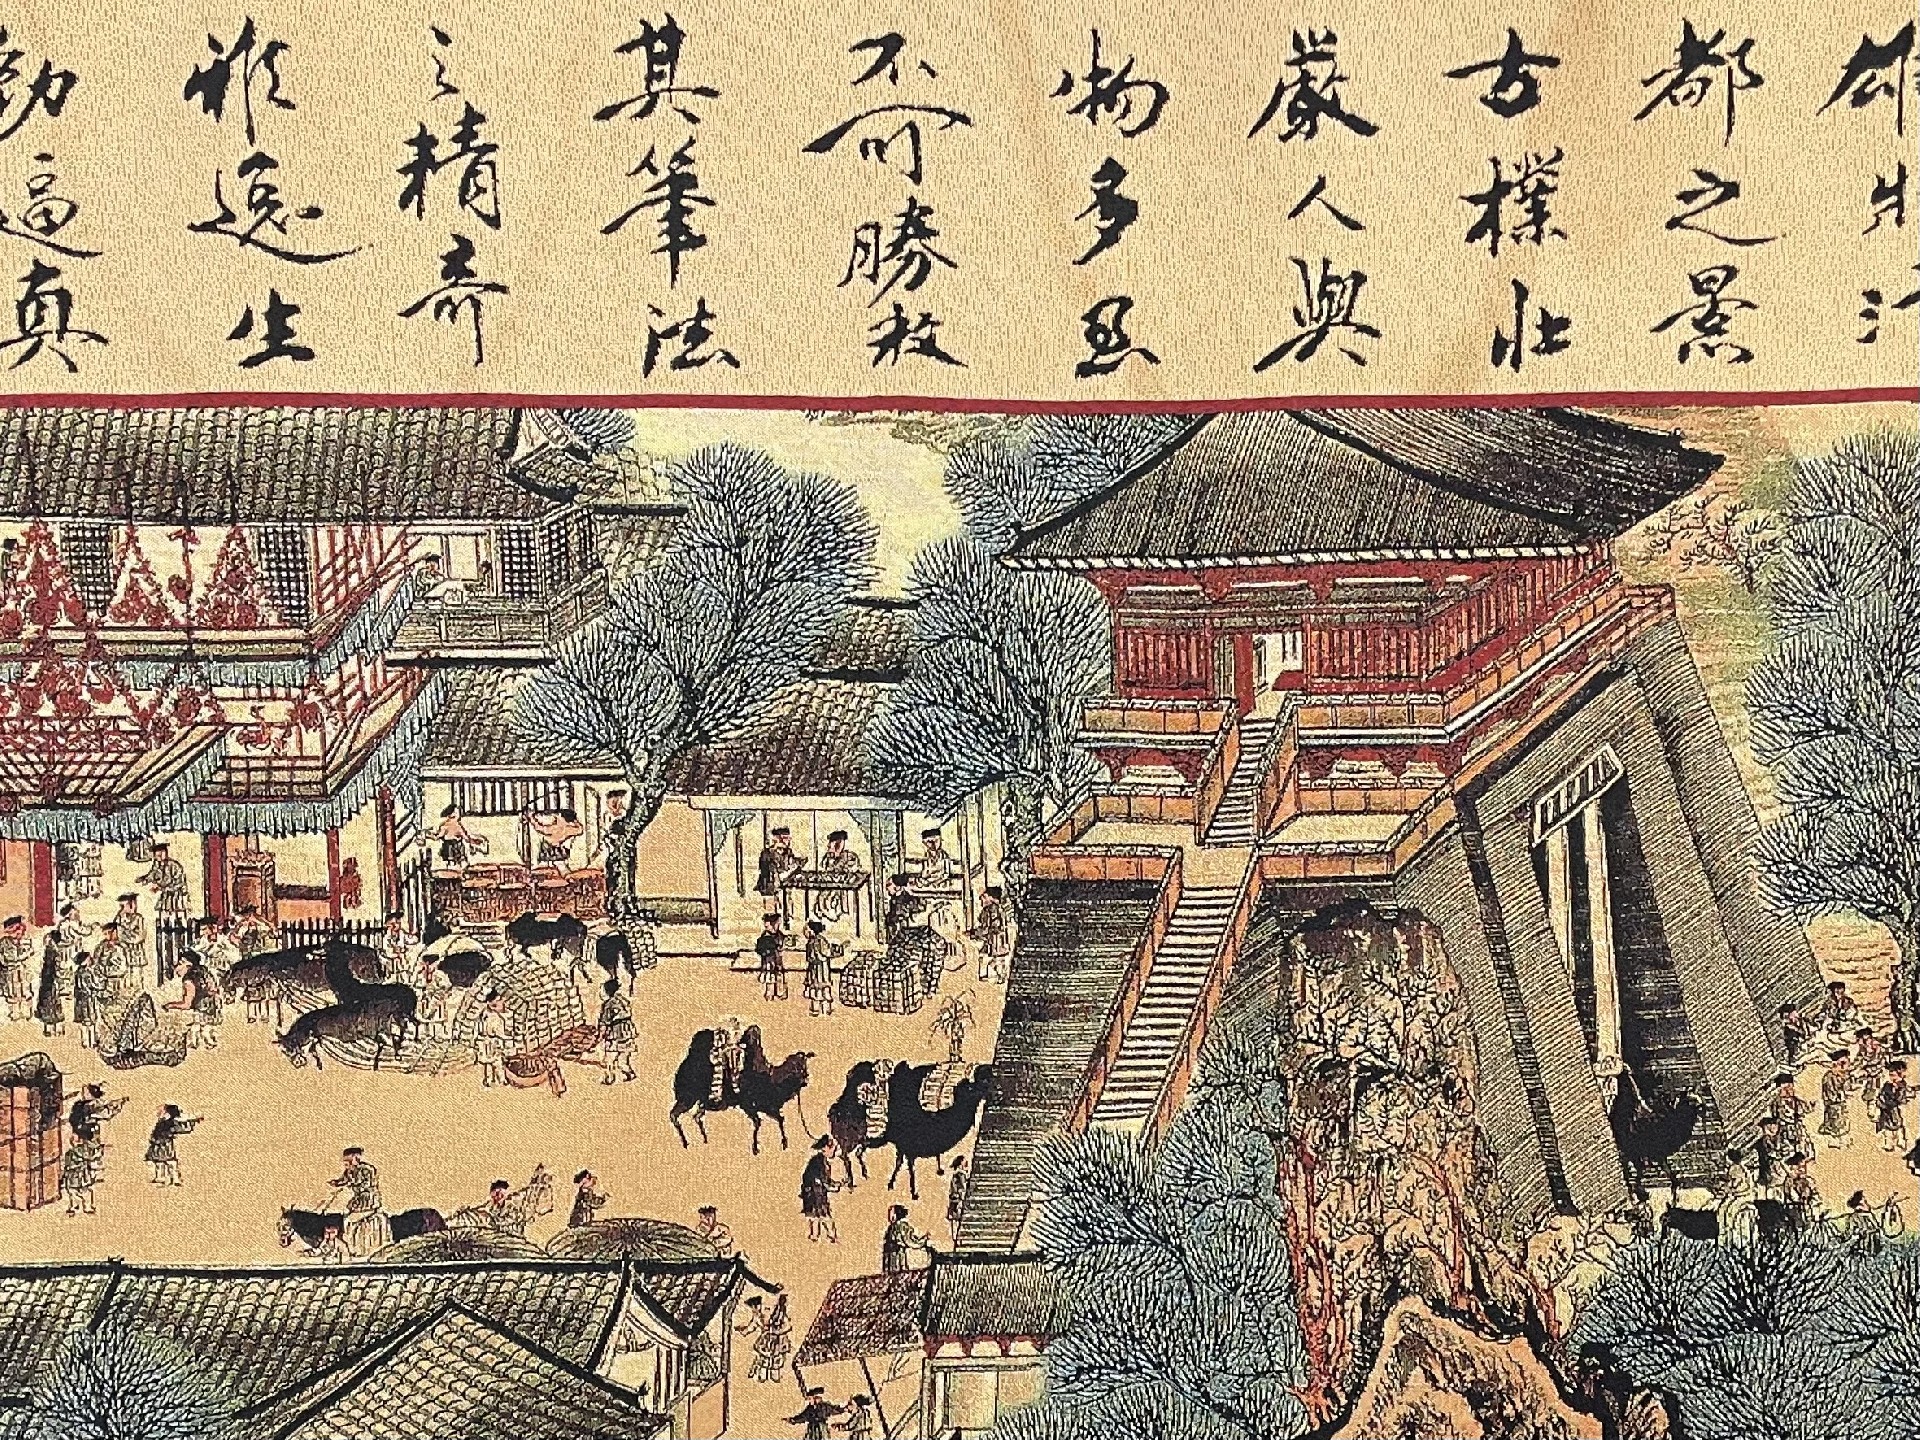 雄
都之景
古樸壯
嚴人與
物多至
不可勝數
其筆法
之精奇
雅逸生
動逼真